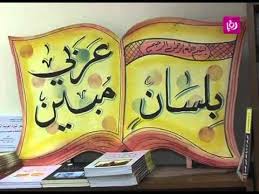 رؤيا
بسم الله الرحمن الرحيم
بلسان
عربي
مبين